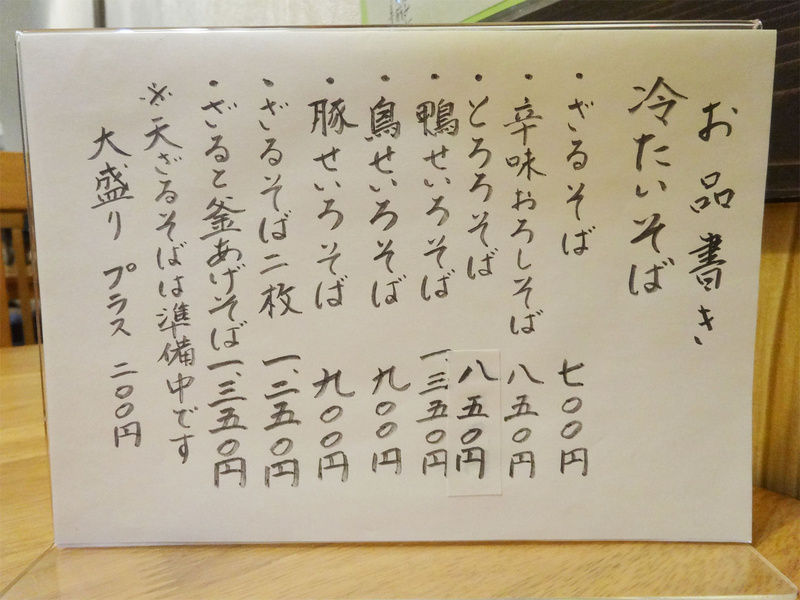 お品書き
冷たいそば
・ざるそば 七〇〇円
・辛味おろしそば 八五〇円
・とろろそば 八五〇円
・鴨せいろそば 一、三五〇円
・鳥せいろそば 九〇〇円
・豚せいろそば 九〇〇円
・ざるそば二枚 一、二五〇円
・ざると釜あげそば 一、三五〇円
※天ざるそばは準備中です
大盛り プラス 二〇〇円